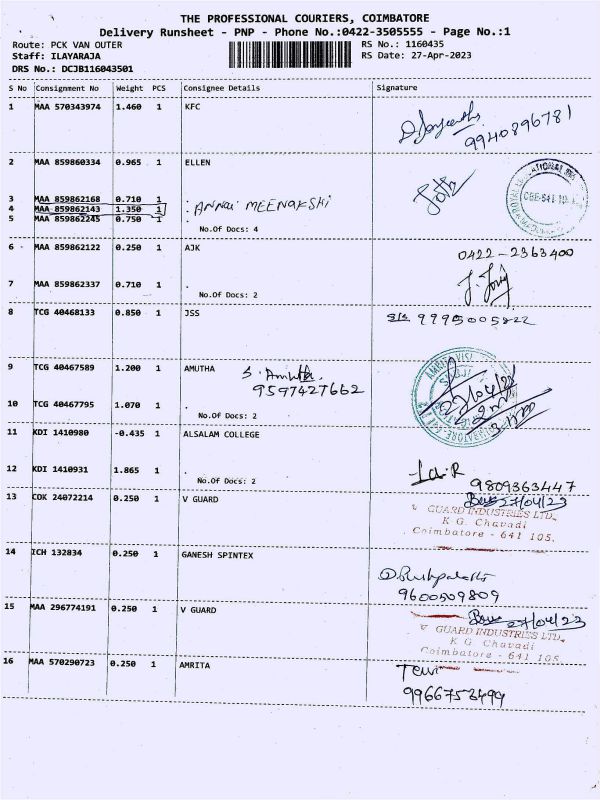 THE PROFESSIONAL COURIERS, COIMBATORE
Delivery Runsheet - PNP - Phone No.:0422-3505555 - Page No.:1
Route: PCK VAN OUTER RS No.: 1160435
Staff: ILAYARAJA RS Date: 27-Apr-2023
DRS No.: DCJB116043501
S No Consignment No Weight PCS Consignee Details Signature
1 MAA 570343974 1.460 1 KFC
9940896781
2 MAA 859860334 0.965 1 ELLEN
3 MAA 859862168 0.710 1 .
4 MAA 859862143 1.350 1 . ANNAI MEENAKSHI
5 MAA 859862245 0.750 1 .
No.Of Docs: 4
6 MAA 859862122 0.250 1 AJK 0422-2363400
7 MAA 859862337 0.710 1 .
No.Of Docs: 2
8 TCG 40468133 0.850 1 JSS 9995005822
9 TCG 40467589 1.200 1 AMUTHA S. Amutha
9597427662
10 TCG 40467795 1.070 1 .
No.Of Docs: 2
11 KDI 1410980 -0.435 1 ALSALAM COLLEGE
12 KDI 1410931 1.865 1 .
No.Of Docs: 2 9809363447
13 COK 24072214 0.250 1 V GUARD 27/04/23
V GUARD INDUSTRIES LTD.,
K G. Chavadi
Coimbatore - 641 105.
14 ICH 132834 0.250 1 GANESH SPINTEX
9600509809
15 MAA 296774191 0.250 1 V GUARD 27/04/23
V GUARD INDUSTRIES LTD.,
K G Chavadi
Coimbatore - 641 105
16 MAA 570290723 0.250 1 AMRITA
9966753494